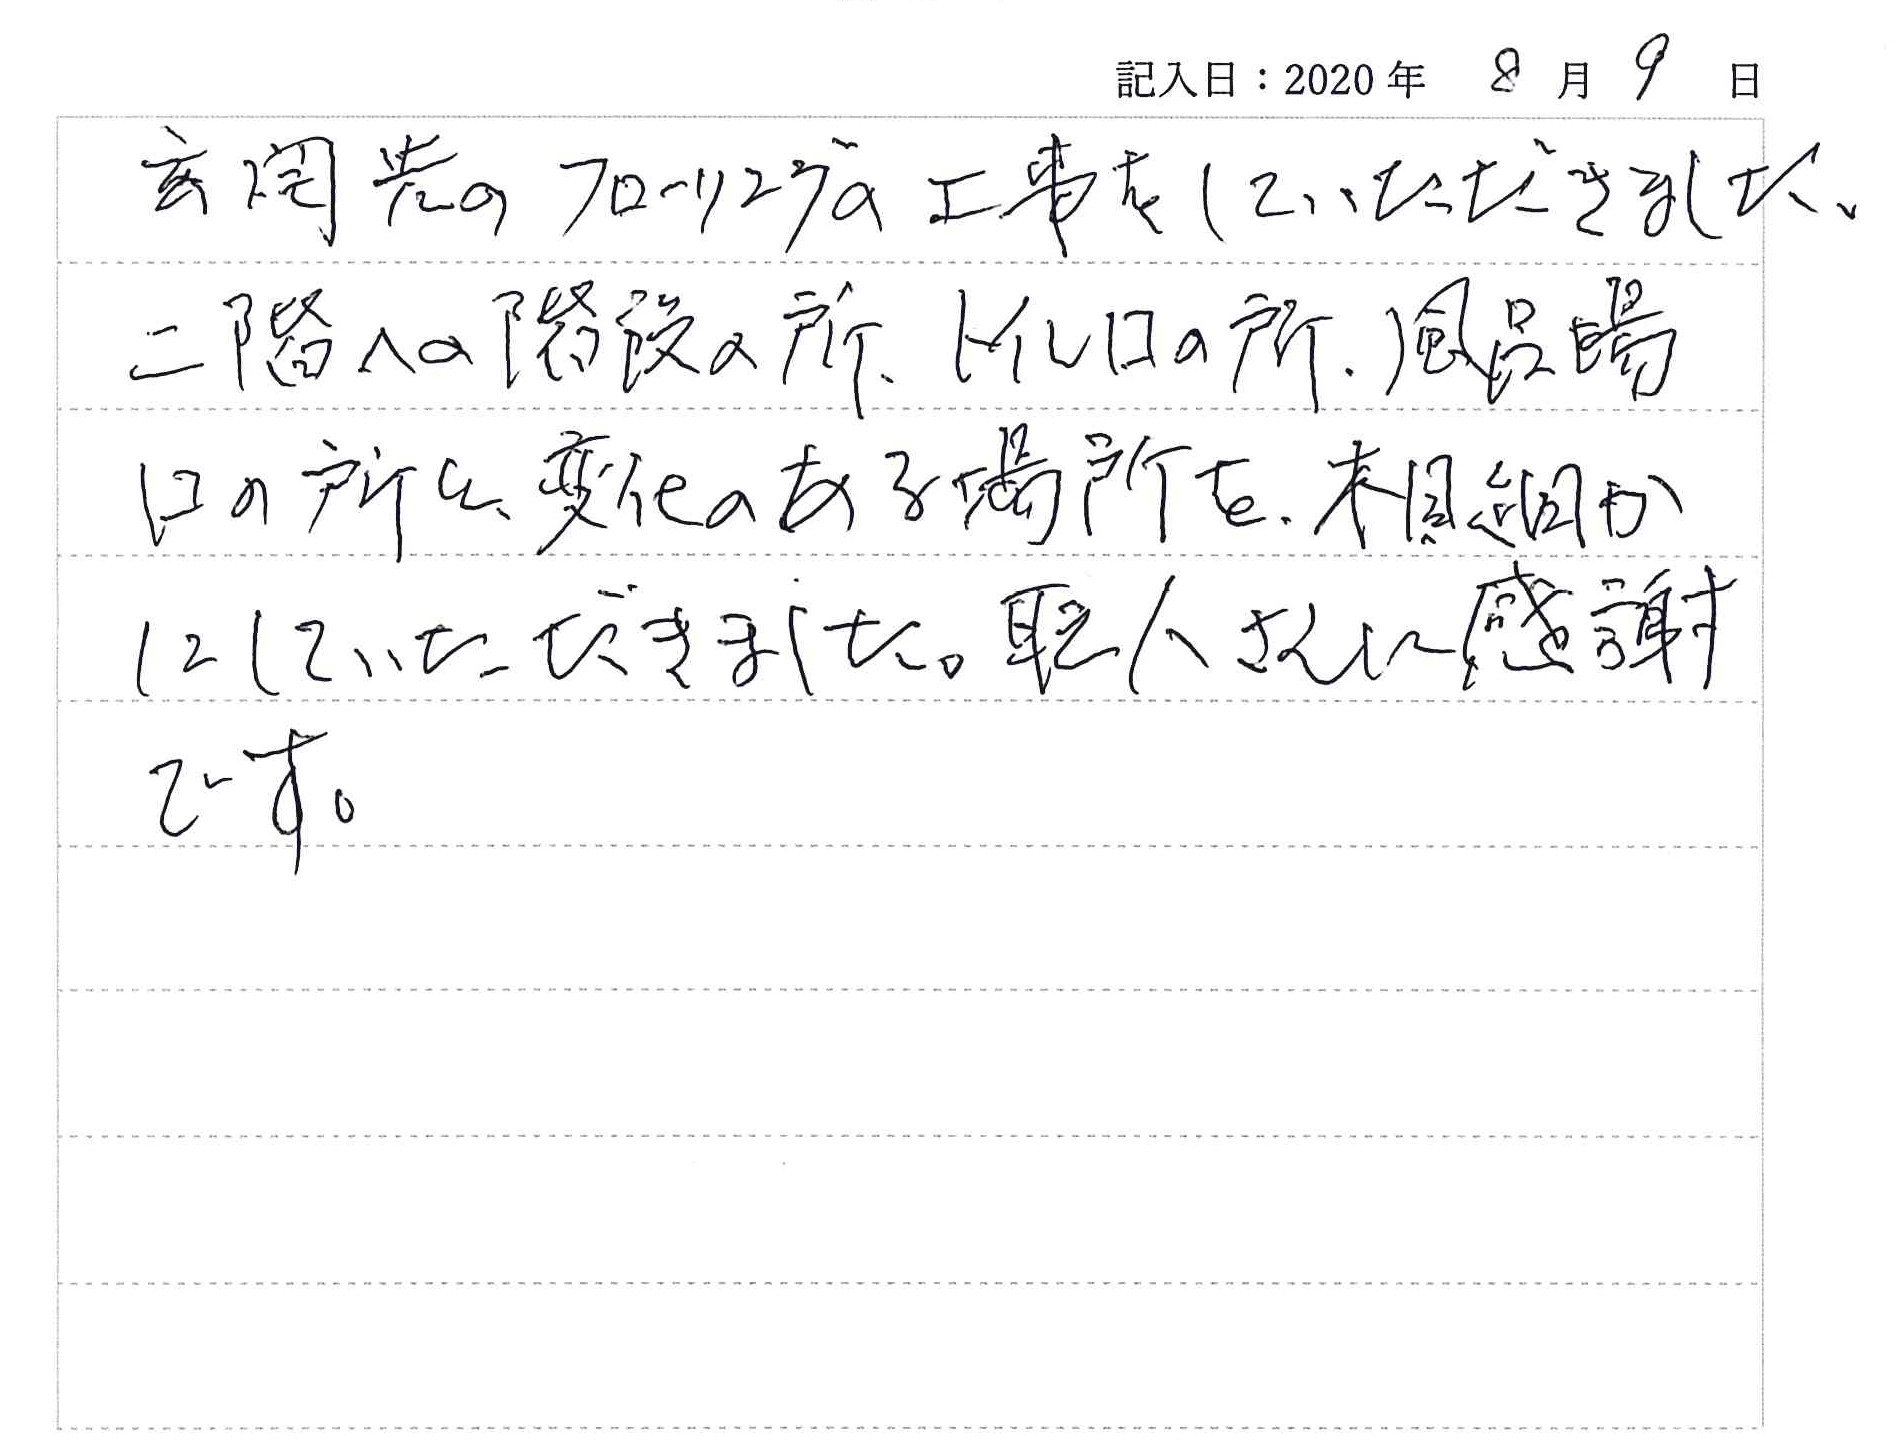 記入日：2020年 8月 9日
玄関先のフローリングの工事をしていただきました、
二階への階段の所、トイレ口の所、風呂場
口の所と、変化のある場所を、木目細か
にしていただきました。職人さんに感謝
です。